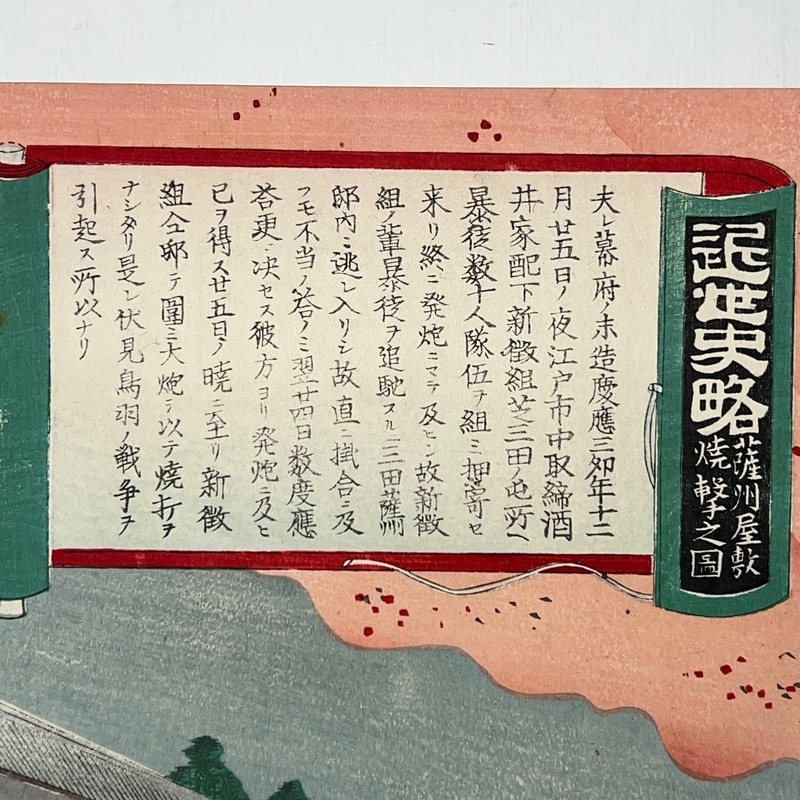 近世史略
薩州屋敷
焼撃之圖
夫レ幕府ノ末造慶應三卯年十二
月廿五日ノ夜江戸市中取締酒
井家配下新徴組芝三田ノ屯所ヘ
暴徒数十人隊伍ヲ組ミ押寄セ
来リ終ニ発炮ニマテ及ヒン故新徴
組ノ輩暴徒ヲ追駈スルニ三田薩州
邸内ニ逃レ入リシ故直ニ掛合ニ及
フモ不当ノ答ノミ翌廿四日数度應
答更ニ决セス彼方ヨリ発炮ニ及ヒ
已ヲ得ス廿五日ノ暁ニ至リ新徴
組仝邸ヲ圍ミ大炮ヲ以テ焼打ヲ
ナシタリ是レ伏見鳥羽ノ戦争ヲ
引起ス所以ナリ